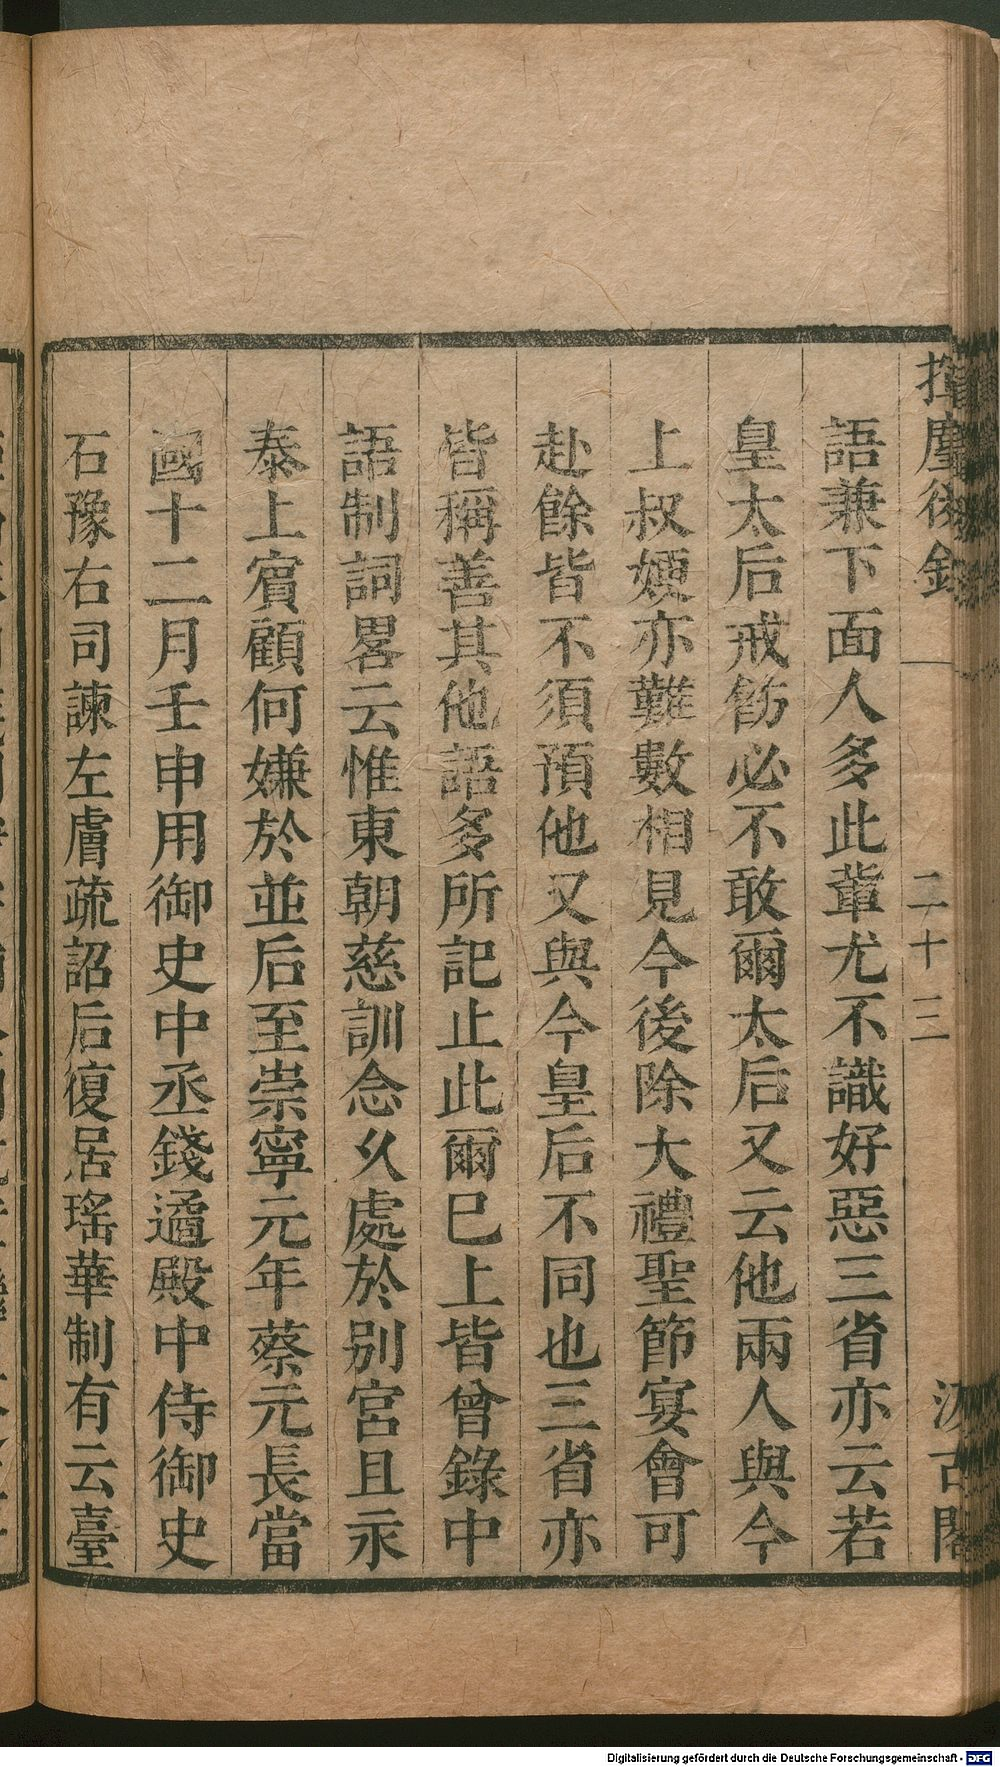 揮麈後錄
二十三
汲古閣
語兼下面人多此輩尤不識好惡三省亦云若
皇太后戒飭必不敢爾太后又云他兩人與今
上叔嫂亦難數相見今後除大禮聖節宴會可
赴餘皆不須預他又與今皇后不同也三省亦
皆稱善其他語多所記止此爾巳上皆曾錄中
語制詞畧云惟東朝慈訓念久處於別宮且永
泰上賓顧何嫌於並后至崇寧元年蔡元長當
國十二月壬申用御史中丞錢遹殿中侍御史
石豫右司諫左膚疏詔后復居瑤華制有云臺
Digitalisierung gefördert durch die Deutsche Forschungsgemeinschaft - DFG